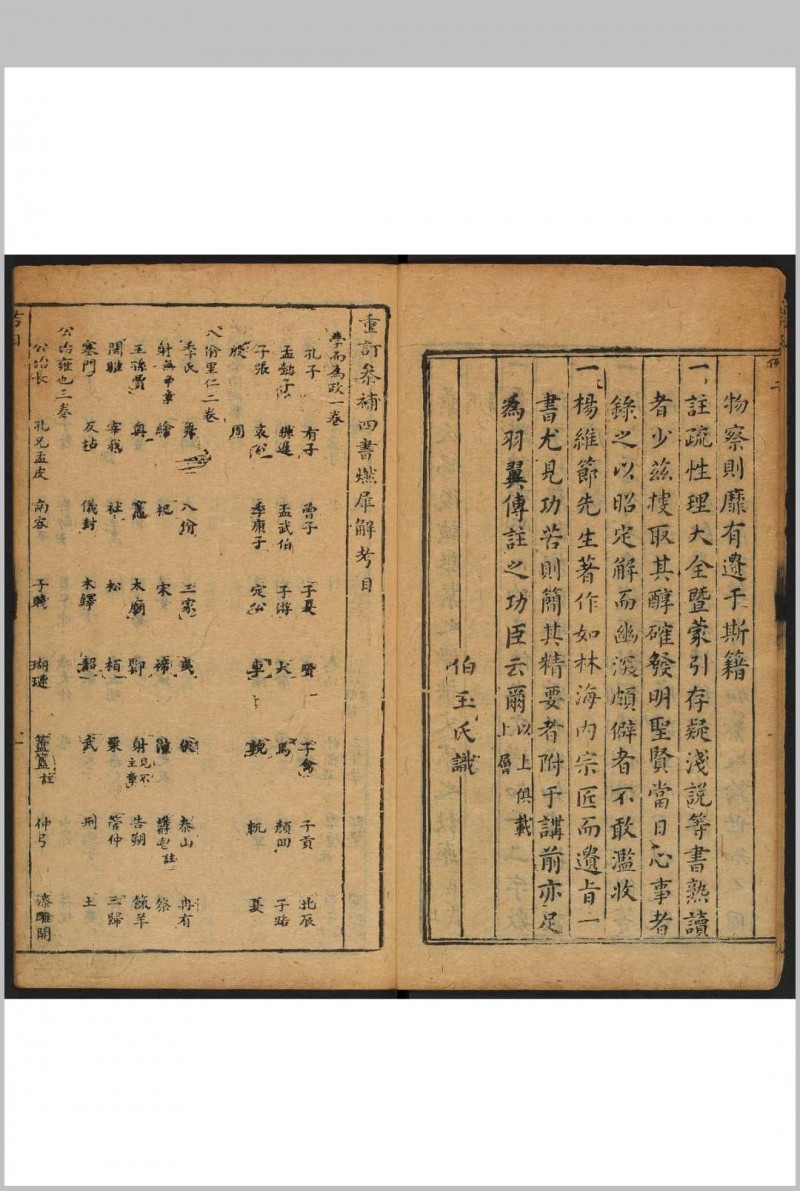 物察則靡有遺于斯籍
一註疏性理大全暨蒙引存疑淺說等書熟讀
者少茲摉取其醇確發明聖賢當日心事者
錄之以昭定解而幽深頗僻者不敢濫收
一楊維節先生著作如林海內宗匠而遺旨一
書尤見功若則簡其精要者附于講前亦足
為羽翼傳註之功臣云爾 以上俱載上層
伯玉氏識
重訂參補四書燃犀解考目
學而為政一卷
孔子 有子 曾子 子夏 賢 子禽 子貢 北辰
孟懿子 樊遲 孟武伯 子游 犬 馬 顏回 子路
子張 哀公 季康子 定公 車 輗 軏 夏
殷 周
八佾里仁二卷
季氏 舞 八佾 三家 泰山 冉有
射無爭章 繪 杞 宋 禘 灌 祭
王孫賈 奧 竈 太廟 射見不主章 告朔 餼羊
關雎 宰我 社 松 栢 栗 管仲 三歸
塞門 反坫 儀封 木鐸 韶 武
公冶雍也三奉
公冶長 孔兄孟皮 南容 子賤 瑚璉 簠簋註 仲弓 漆雕開